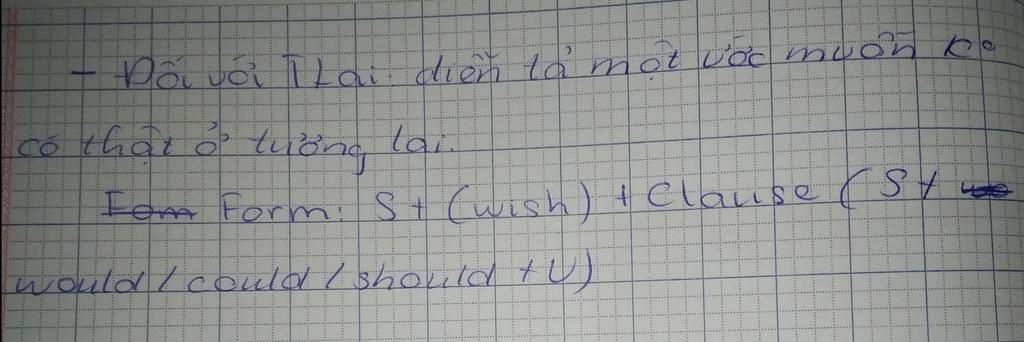 - Đối với TLai: diễn tả một ước muốn ko
có thật ở tương lai.
Form: S + (wish) + Clause ( S +
would / could / should + V)